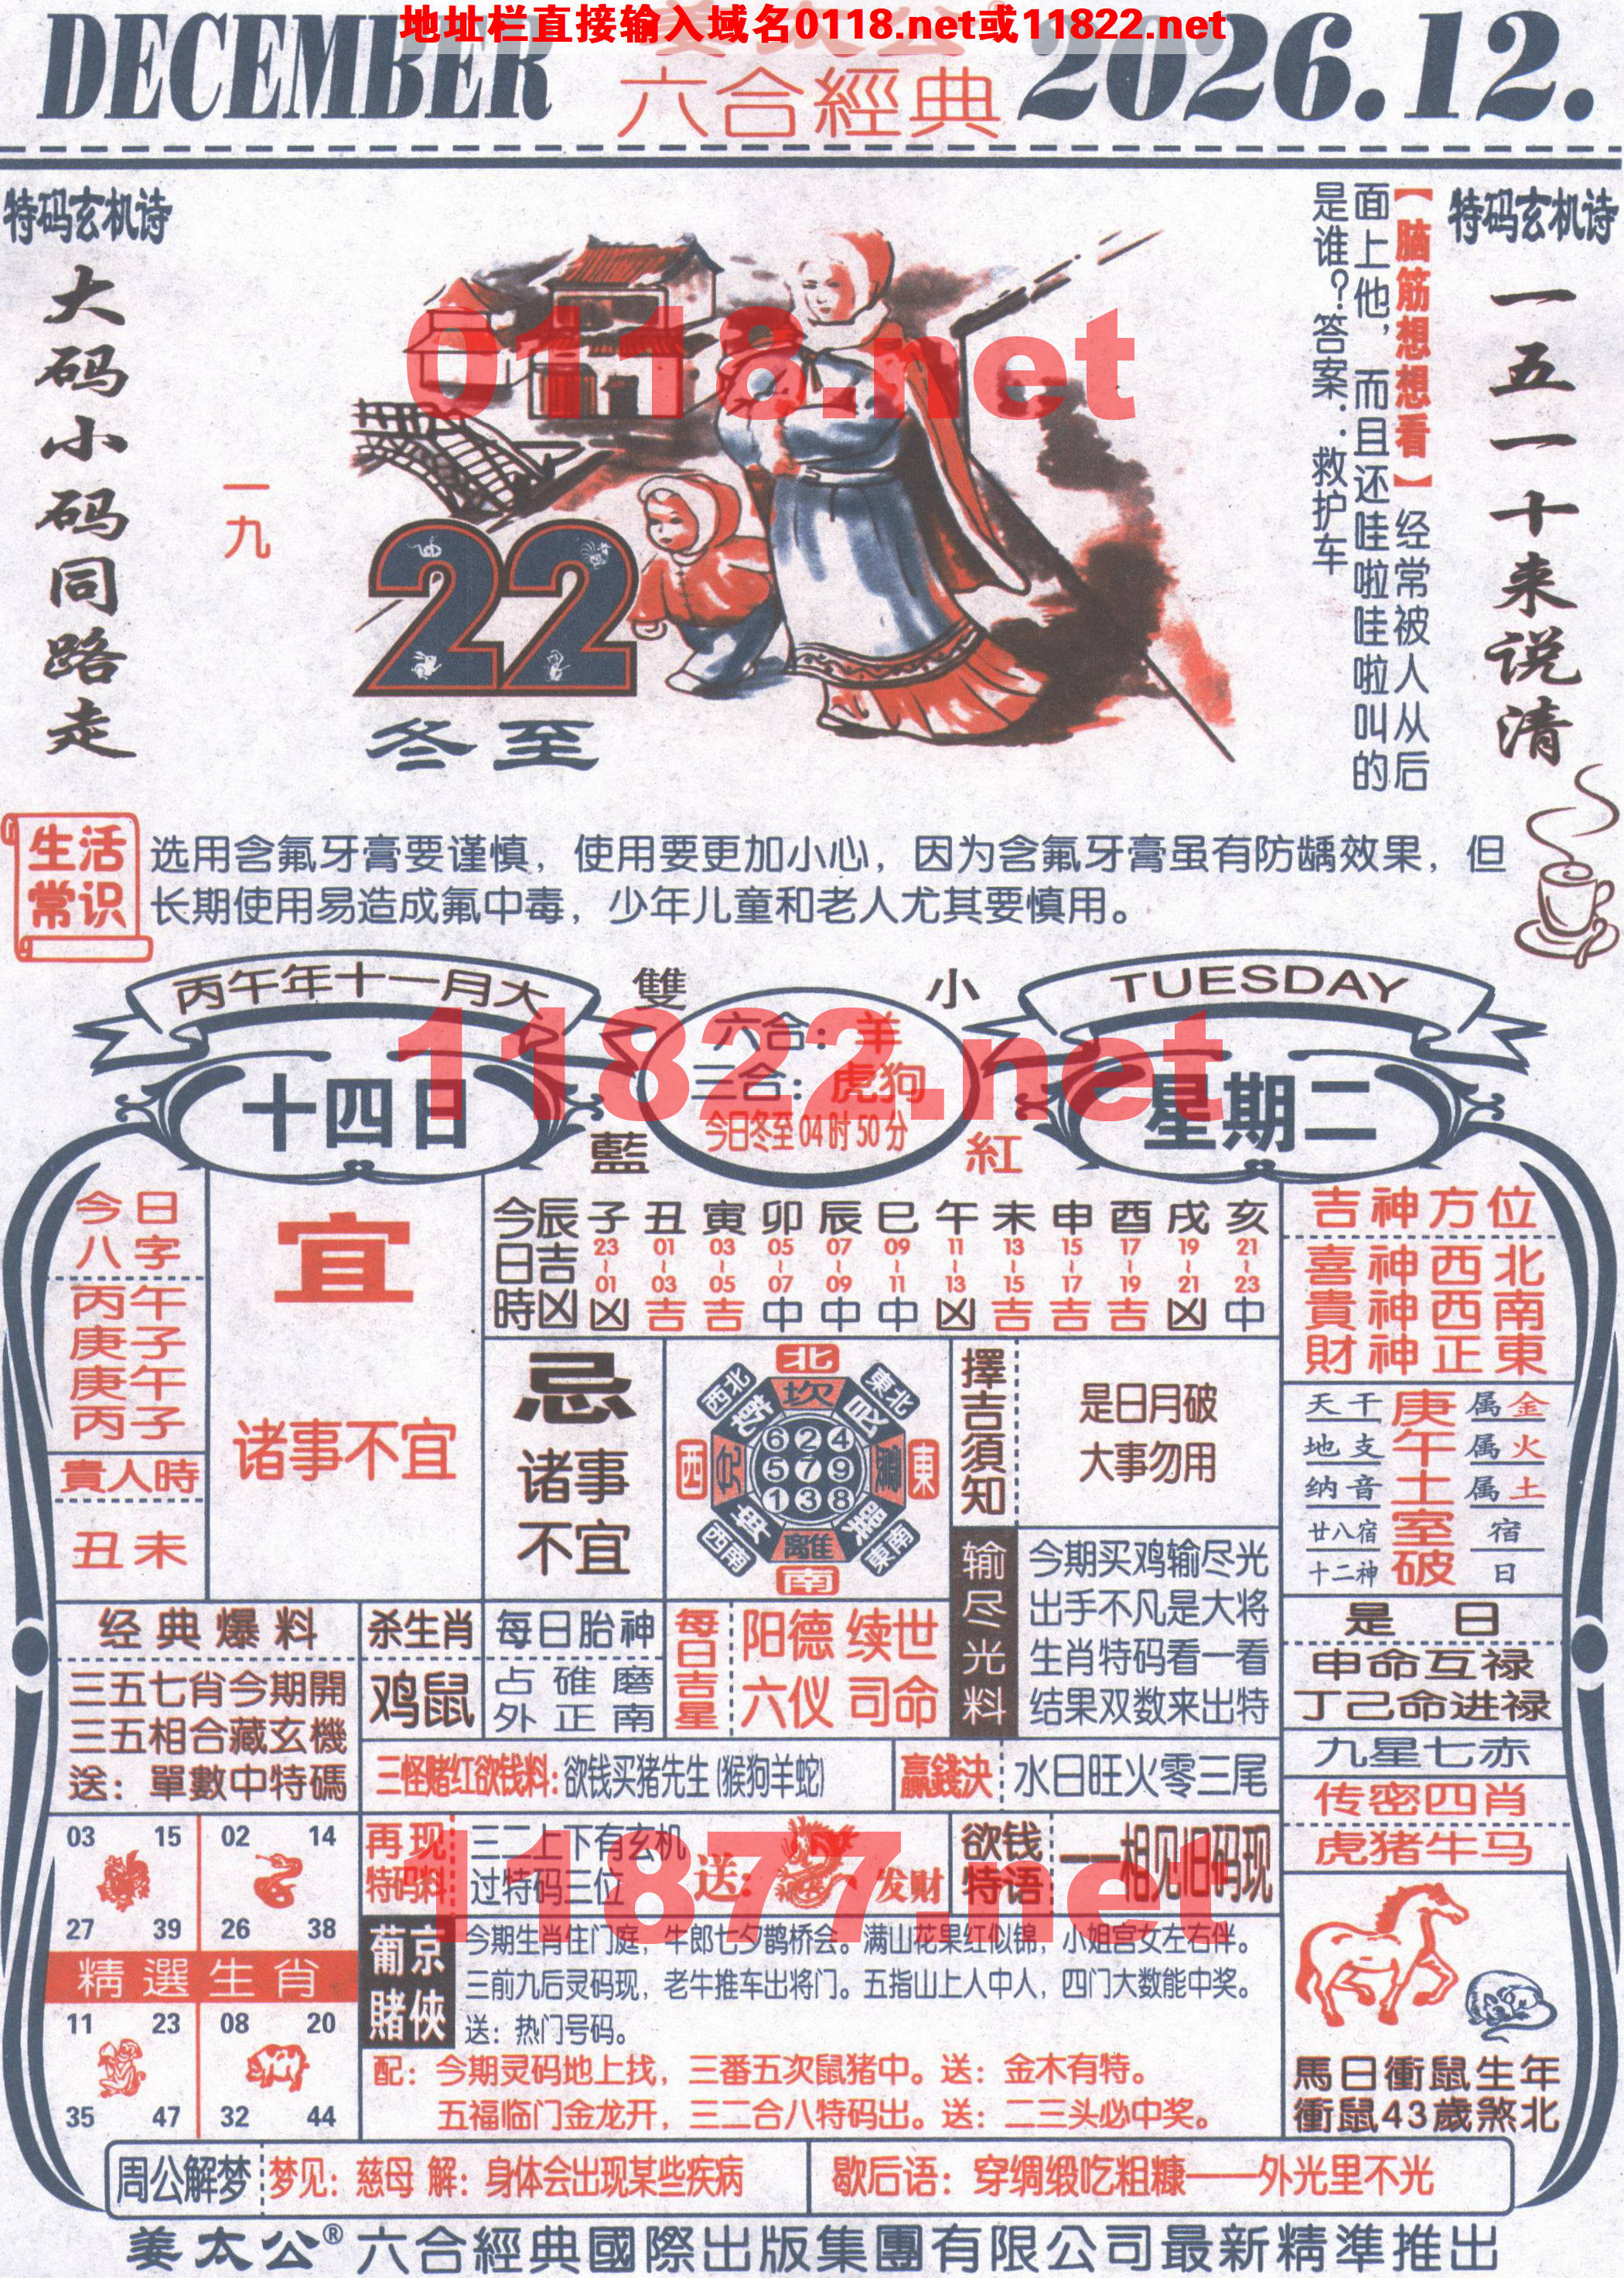 地址栏直接输入域名0118.net或11822.net
DECEMBER
姜太公
六合經典
2026.12.
特码玄机诗
大码小码同路走
一九
0118.net
22
冬至
【脑筋想想看】经常被人从后
面上他，而且还哇啦哇啦叫的
是谁？答案：救护车
特码玄机诗
一五一十来说清
生活
常识
选用含氟牙膏要谨慎，使用要更加小心，因为含氟牙膏虽有防龋效果，但
长期使用易造成氟中毒，少年儿童和老人尤其要慎用。
丙午年十一月大
十四日
雙
小
藍
紅
六合：羊
三合：虎狗
今日冬至04时50分
11822.net
TUESDAY
星期二
今日
八字
丙午
庚子
庚午
丙子
貴人時
丑未
宜
诸事不宜
今辰 子 丑 寅 卯 辰 巳 午 未 申 酉 戌 亥
日吉 23~01 01~03 03~05 05~07 07~09 09~11 11~13 13~15 15~17 17~19 19~21 21~23
時凶 凶 吉 吉 中 中 中 凶 吉 吉 吉 凶 中
忌
诸事
不宜
北
西北 坎 東北
乾 艮
西 兌 震 東
6 2 4
5 7 9
1 3 8
坤 巽
西南 離 東南
南
擇吉須知
是日月破
大事勿用
输尽光料
今期买鸡输尽光
出手不凡是大将
生肖特码看一看
结果双数来出特
吉神方位
喜神西北
貴神西南
財神正東
天干 庚 属金
地支 午 属火
纳音 土 属土
廿八宿 室 宿
十二神 破 日
是日
申命互禄
丁己命进禄
九星七赤
传密四肖
虎猪牛马
经典爆料
三五七肖今期開
三五相合藏玄機
送：單數中特碼
杀生肖
鸡鼠
每日胎神
占碓磨
外正南
每日吉星
阳德 续世
六仪 司命
三怪赌红欲钱料：欲钱买猪先生(猴狗羊蛇)
贏錢決
水日旺火零三尾
03 15 02 14
27 39 26 38
精選生肖
11 23 08 20
35 47 32 44
再现
特码料
三二上下有玄机
过特码三位
送：
发财
欲钱
特语
一相见旧码现
11877.net
葡京
賭俠
今期生肖住门庭，牛郎七夕鹊桥会。满山花果红似锦，小姐宫女左右伴。
三前九后灵码现，老牛推车出将门。五指山上人中人，四门大数能中奖。
送：热门号码。
配：今期灵码地上找，三番五次鼠猪中。送：金木有特。
五福临门金龙开，三二合八特码出。送：二三头必中奖。
馬日衝鼠生年
衝鼠43歲煞北
周公解梦
梦见：慈母 解：身体会出现某些疾病
歇后语：穿绸缎吃粗糠——外光里不光
姜太公®六合經典國際出版集團有限公司最新精準推出